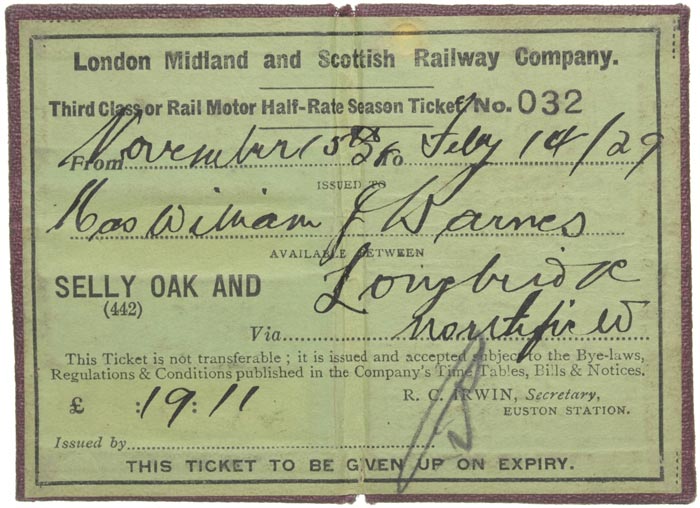 London Midland and Scottish Railway Company.
Third Class or Rail Motor Half-Rate Season Ticket No. 032
From November 15th 28 to Feby 14/29
ISSUED TO
Mas William J Barnes
AVAILABLE BETWEEN
SELLY OAK AND Longbridge
(442)
Via Northfield
This Ticket is not transferable ; it is issued and accepted subject to the Bye-laws,
Regulations & Conditions published in the Company's Time Tables, Bills & Notices.
£ : 19 : 11
R. C. IRWIN, Secretary,
EUSTON STATION.
Issued by
THIS TICKET TO BE GIVEN UP ON EXPIRY.